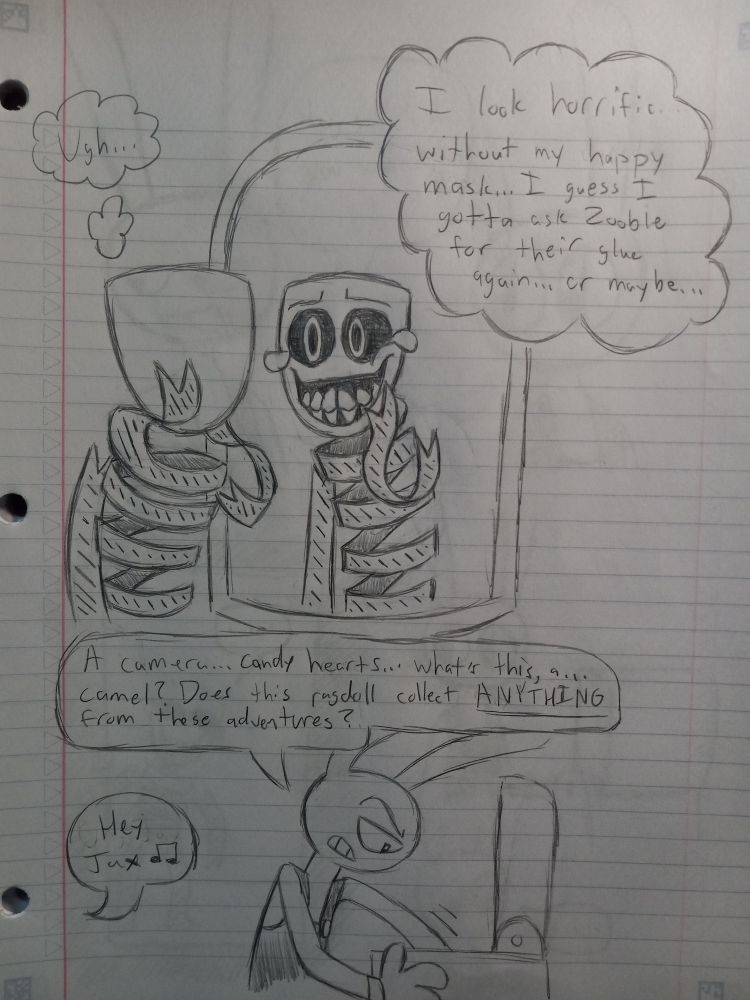 Ugh...
I look horrific...
without my happy
mask... I guess I
gotta ask Zooble
for their glue
again... or maybe...
A camera... candy hearts... what's this, a...
camel? Does this ragdoll collect ANYTHING
from these adventures?
Hey,
Jax ♫